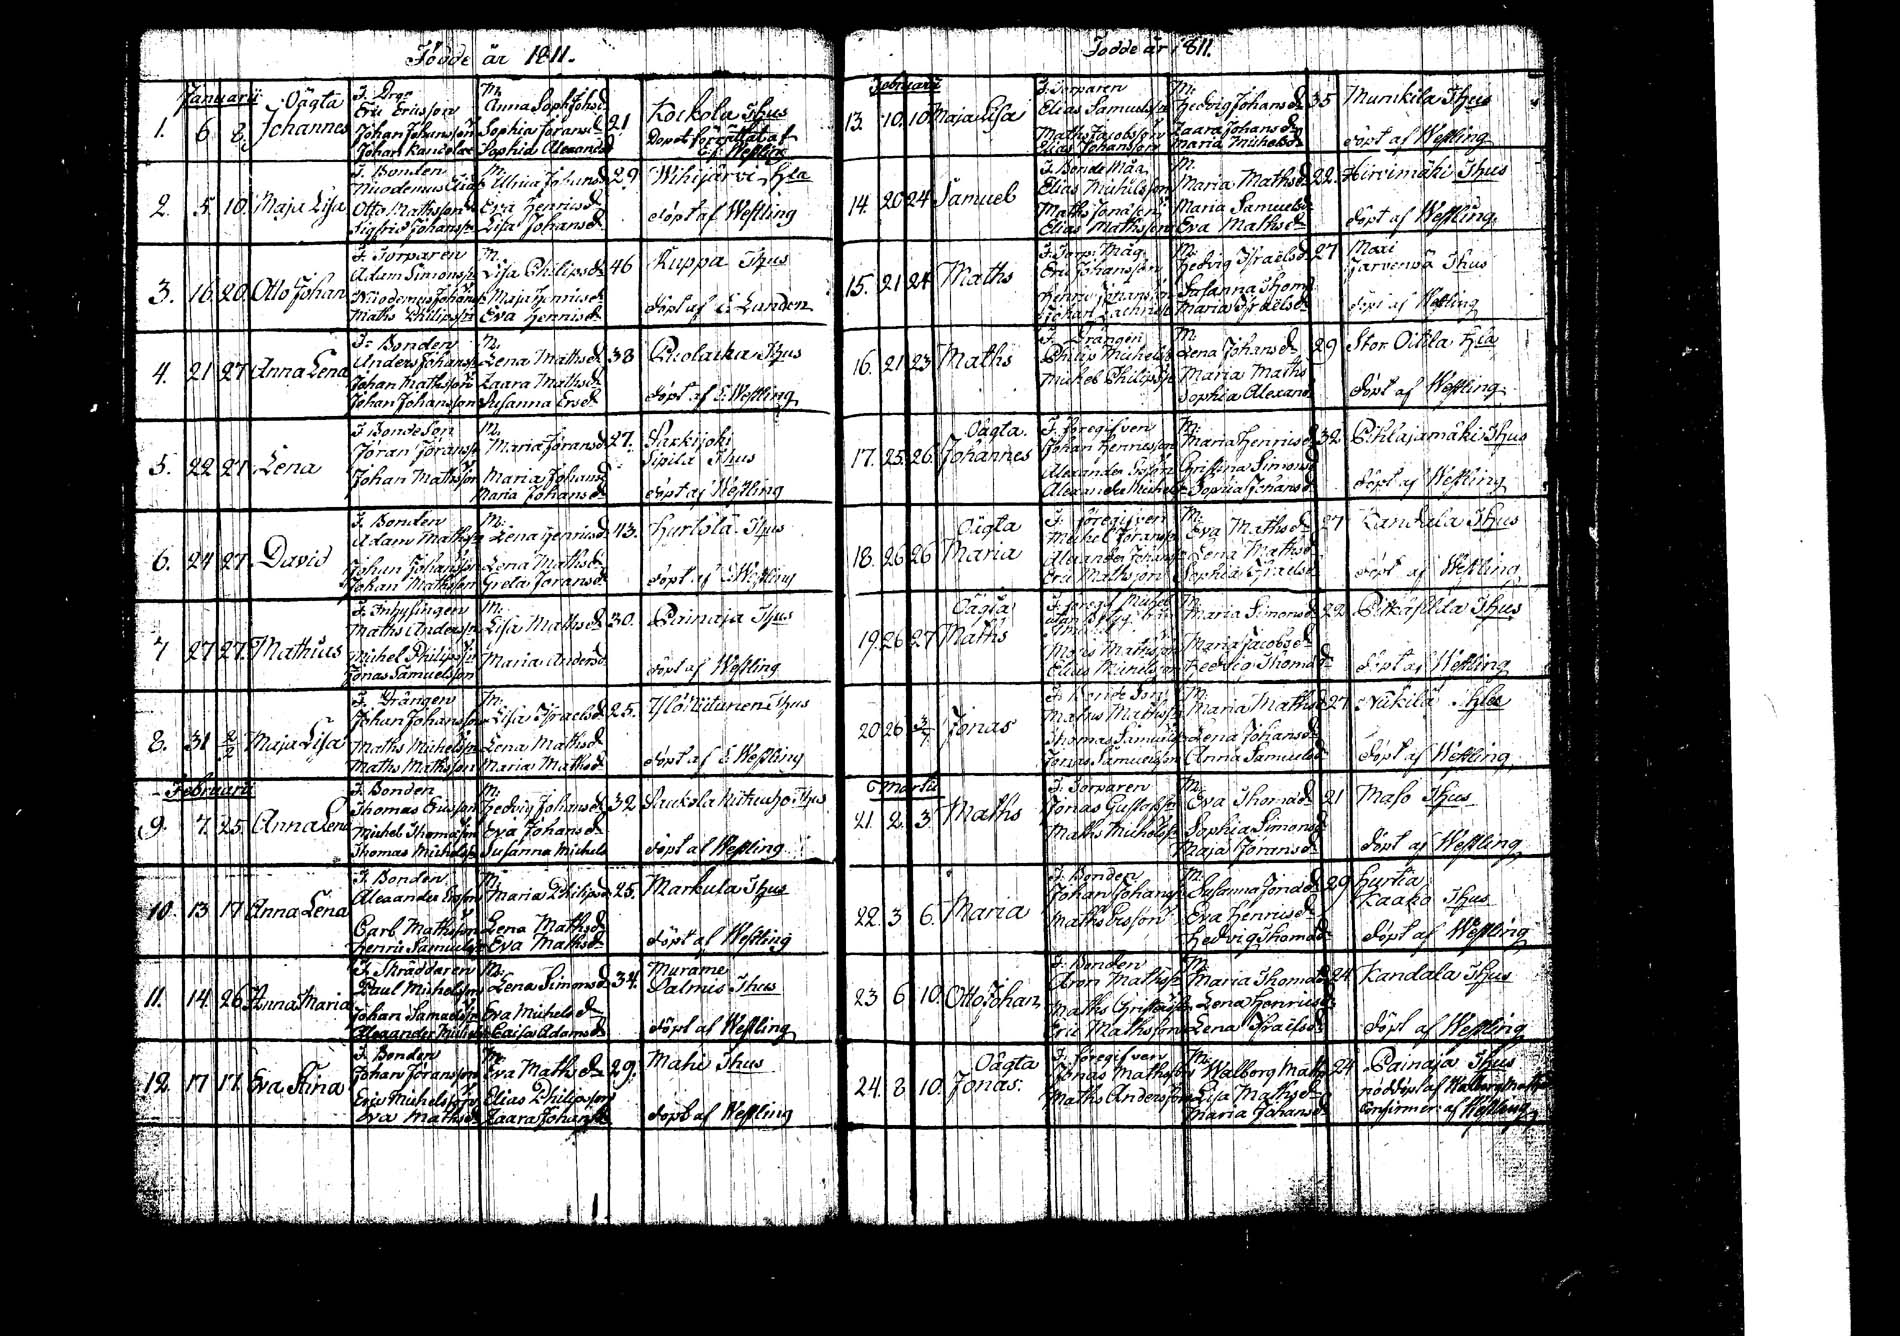 Födde år 1811.
Januarii
1. 6 8 Oägta Johannes
F. Drgn Eric Ericsson
Johan Johansson
M. Anna Soph Johsd
Sophia Joransd 21
Sophia Alexandsd
Kockola Thus
Döpt förrättat af
Westling
2. 5. 10. Maja Lisa
F. Bonden
Otto Mathsson
Sigfrid Johansson
M. Ulrica Johansd 29
Eva Henricsd
Lisa Johansd
Wihijärvi Kla
döpt af Westling
3. 16. 20. Otto Johan
F. Torparen
Adam Simonss
Nicodemus Johans
Maths Philipss
M. Lisa Philipsd 46
Maja Henricsd
Eva Henricsd
Ruppa Thus
döpt af E Lunden
4. 21 27 Anna Lena
F. Bonden
Anders Johanss
Johan Mathsson
Johan Johansson
M. Lena Mathsd 38
Zaara Mathsd
Susanna Ersd
Thus
döpt af E Westling
5. 22 27 Lena
F Bondeson
Joran Joranss
Johan Mathsson
M. Maria Joransd 27.
Maria Johansd
Maria Johansd
Sarkijoki
Sipilä Thus
döpt af Westling
6. 24 27. David
F. Bonden
Adam Mathss
Johan Johansson
Johan Mathsson
M. Lena Henricsd 43.
Lena Mathsd
Greta Joransd
Thus
döpt af E Westling
7 27 27. Mathias
F. Inhysingen
Maths Anderss
Michel Philipss
Jonas Samuelsson
M. Lisa Mathsd 30.
Maria Andersd
Painaja Thus
döpt af Westling
8. 31 2/2 Maja Lisa
F. Drängen
Johan Johansson
Maths Michelss
Maths Mathsson
M. Lisa Israelsd 25.
Lena Mathsd
Maria Mathsd
Thus
döpt af E Westling
Februarii
9. 7. 25. Anna Lena
F. Bonden
Thomas Ericsson
Michel Thomasson
Thomas Michelss
M. Hedvig Johansd 32.
Eva Johansd
Susanna Michels
Thus
döpt af Westling
10. 13 17 Anna Lena
F. Bonden
Alexander Ersson
Carl Mathsson
Henric Samuelss
M. Maria Philipsd 25.
Lena Mathsd
Eva Mathsd
Markula Thus
döpt af Westling
11. 14. 26. Anna Maria
F. Skräddaren
Paul Michelsson
Johan Samuelss
Alexander Michelss
M. Lena Simonsd 34.
Eva Michelsd
Caisa Adamsd
Murame
Salmis Thus
döpt af Westling
12. 17 17. Eva Stina
F. Bonden
Johan Joransson
Eric Michelsson
Eva Mathsd
M. Eva Mathsd 29.
Elias Philipsson
Zaara Johansd
Mahi Thus
döpt af Westling
1.
Födde år 1811.
Februarii
13. 10. 10 Maja Lisa
F. Torparen
Elias Samuelss
Maths Jacobsson
Elias Johansson
M. Hedvig Johansd 35
Zaara Johansd
Maria Michelsd
Munikila Thus
döpt af Westling
14. 20 24 Samuel
F. Bonde Måg
Elias Michelsson
Maths Jonasson
Elias Mathsson
M. Maria Mathsd 22.
Maria Samuelsd
Eva Mathsd
Hirvimäki Thus
döpt af Westling
15. 21 24 Maths
F. Torp. Måg
Eric Johansson
Henric Johansson
M. Hedvig Israelsd 27
Susanna Thoms
Maria Israelsd
Järvenpä Thus
döpt af Westling
16. 21 23 Maths
F. Drängen
Philip Michels
Michel Philipss
M. Lena Johansd 29
Maria Maths
Sophia Alexand
Stor Kla
döpt af Westling
17. 25. 26. Oägta. Johannes
F. föregifven
Johan Henricsson
Alexander Ersson
Alexander Michels
M. Maria Henricsd 32.
Christina Simonsd
Sophia Johansd
Pihlajamäki Thus
döpt af Westling
18. 26 26 Oägta Maria
F. föregifven
Michel Joranss
Alexander Johanss
Eric Mathsson
M. Eva Mathsd 27
Lena Mathsd
Sophia Israelsd
Kandala Thus
döpt af Westling
19. 26 27 Oägta Maths
F. föregif Michel
Maths Mathsson
Elias Michelsson
M. Maria Simonsd 22.
Maria Jacobsd
Hedvig Thomasd
Thus
döpt af Westling
20 26 3/7 Jonas
F. Bonde Son
Mathias Mathss
Thomas Samuels
Jonas Samuelsson
M. Maria Mathsd 27
Lena Johansd
Anna Samuelsd
Nikilä
döpt af Westling
Martii
21. 2. 3. Maths
F. Torparen
Jonas Gustafss
Maths Michelss
M. Eva Thomasd 21
Sophia Simonsd
Maja Joransd
Maso Thus
döpt af Westling
22. 3 6. Maria
F. Bonden
Johan Johanss
Maths Ersson
M. Susanna Jonasd 29
Eva Henricsd
Hedvig Thomasd
Hurtia
Kaako Thus
döpt af Westling
23 6 10. Otto Johan
F. Bonden
Aron Mathss
Maths
Eric Mathsson
M. Maria Thomasd 24
Lena Henricsd
Lena Israelsd
Kandala Thus
döpt af Westling
24. 8 10. Oägta Jonas.
F. föregifven
Jonas Mathsson
Maths Andersson
M. Walborg Maths 24
Lisa Mathsd
Maria Johansd
Painaja Thus
nöddöpt af Walborg Mathsd
Confirmer: af Westling